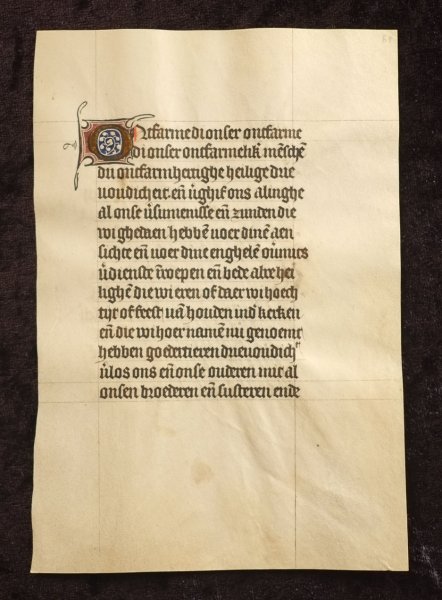 Ontfarme di onser ontfarme
di onser ontfarmelik mēschē
du ontfarmhertighe heilige drie
voudicheit eñ v̄ghif ons alinghe
al onse v̄sumenisse eñ zunden die
wi ghedaen hebbē voer dinē aen
sichte eñ voer dinē enghelē ōmits
v̄dienste roepen eñ bede alre hei
lighē die wi eren of daer wi hoech
tyt of feest vā houden īnd kerken
eñ die wi hoer namē nu genoemt
hebben goedertieren drievoudich
v̄los ons eñ onse ouderen mit al
onsen broederen eñ susteren ende